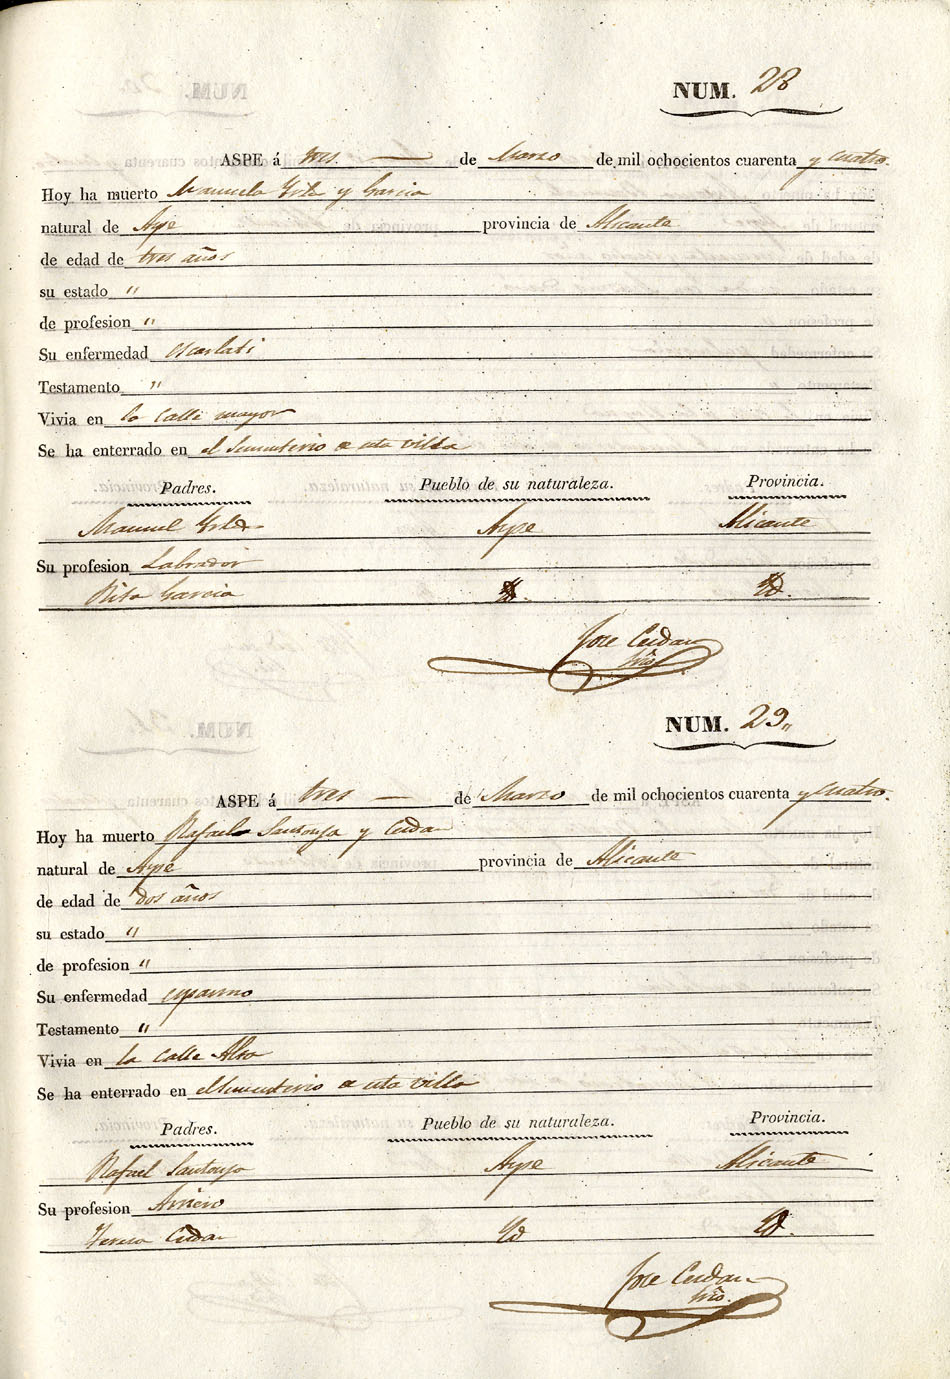 NUM. 28
ASPE á tres — de Marzo de mil ochocientos cuarenta y cuatro.
Hoy ha muerto Manuela y Garcia
natural de Aspe provincia de Alicante
de edad de tres años
su estado "
de profesion "
Su enfermedad escarlati
Testamento "
Vivia en la calle mayor
Se ha enterrado en el Sementerio esta villa
Padres. Pueblo de su naturaleza. Provincia.
Manuel Aspe Alicante
Su profesion Labrador
Rita Garcia Yd.
Jose Cerdan
Srio.
NUM. 29"
ASPE á tres — de Marzo de mil ochocientos cuarenta y cuatro.
Hoy ha muerto Rafael Santonja y Cerdan
natural de Aspe provincia de Alicante
de edad de dos años
su estado "
de profesion "
Su enfermedad espasmo
Testamento "
Vivia en la calle Alta
Se ha enterrado en el Sementerio esta villa
Padres. Pueblo de su naturaleza. Provincia.
Rafael Santonja Aspe Alicante
Su profesion Arriero
Teresa Cerdan Yd Yd.
Jose Cerdan
Srio.